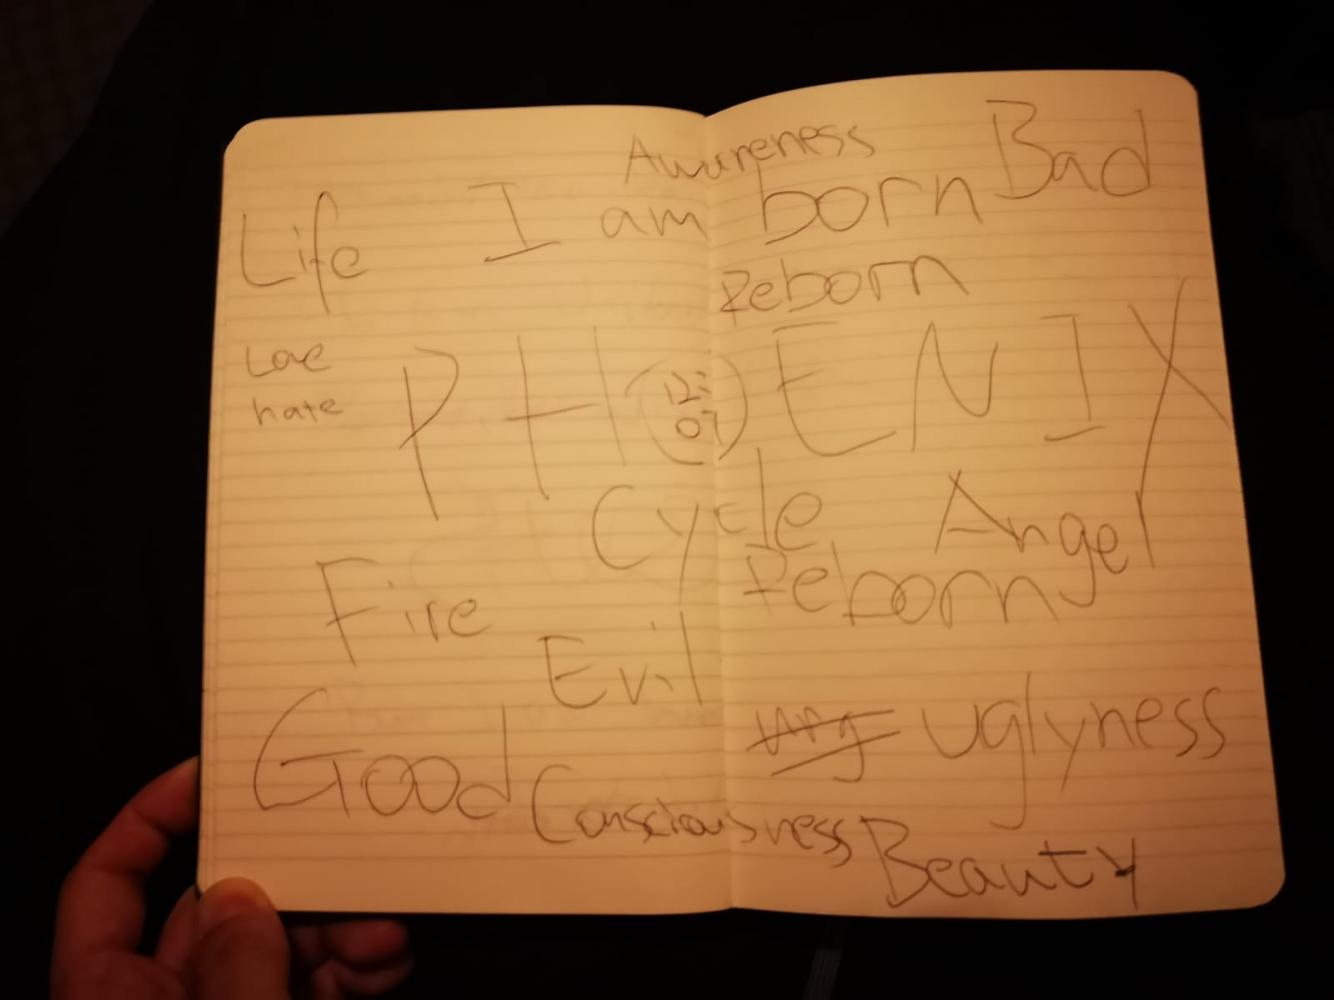 Awareness
Bad
Life I am born
Reborn
Love
hate
PHOENIX
12:
07
Cycle
Angel
Reborn
Fire
Evil
Uglyness
Good
Consciousness
Beauty